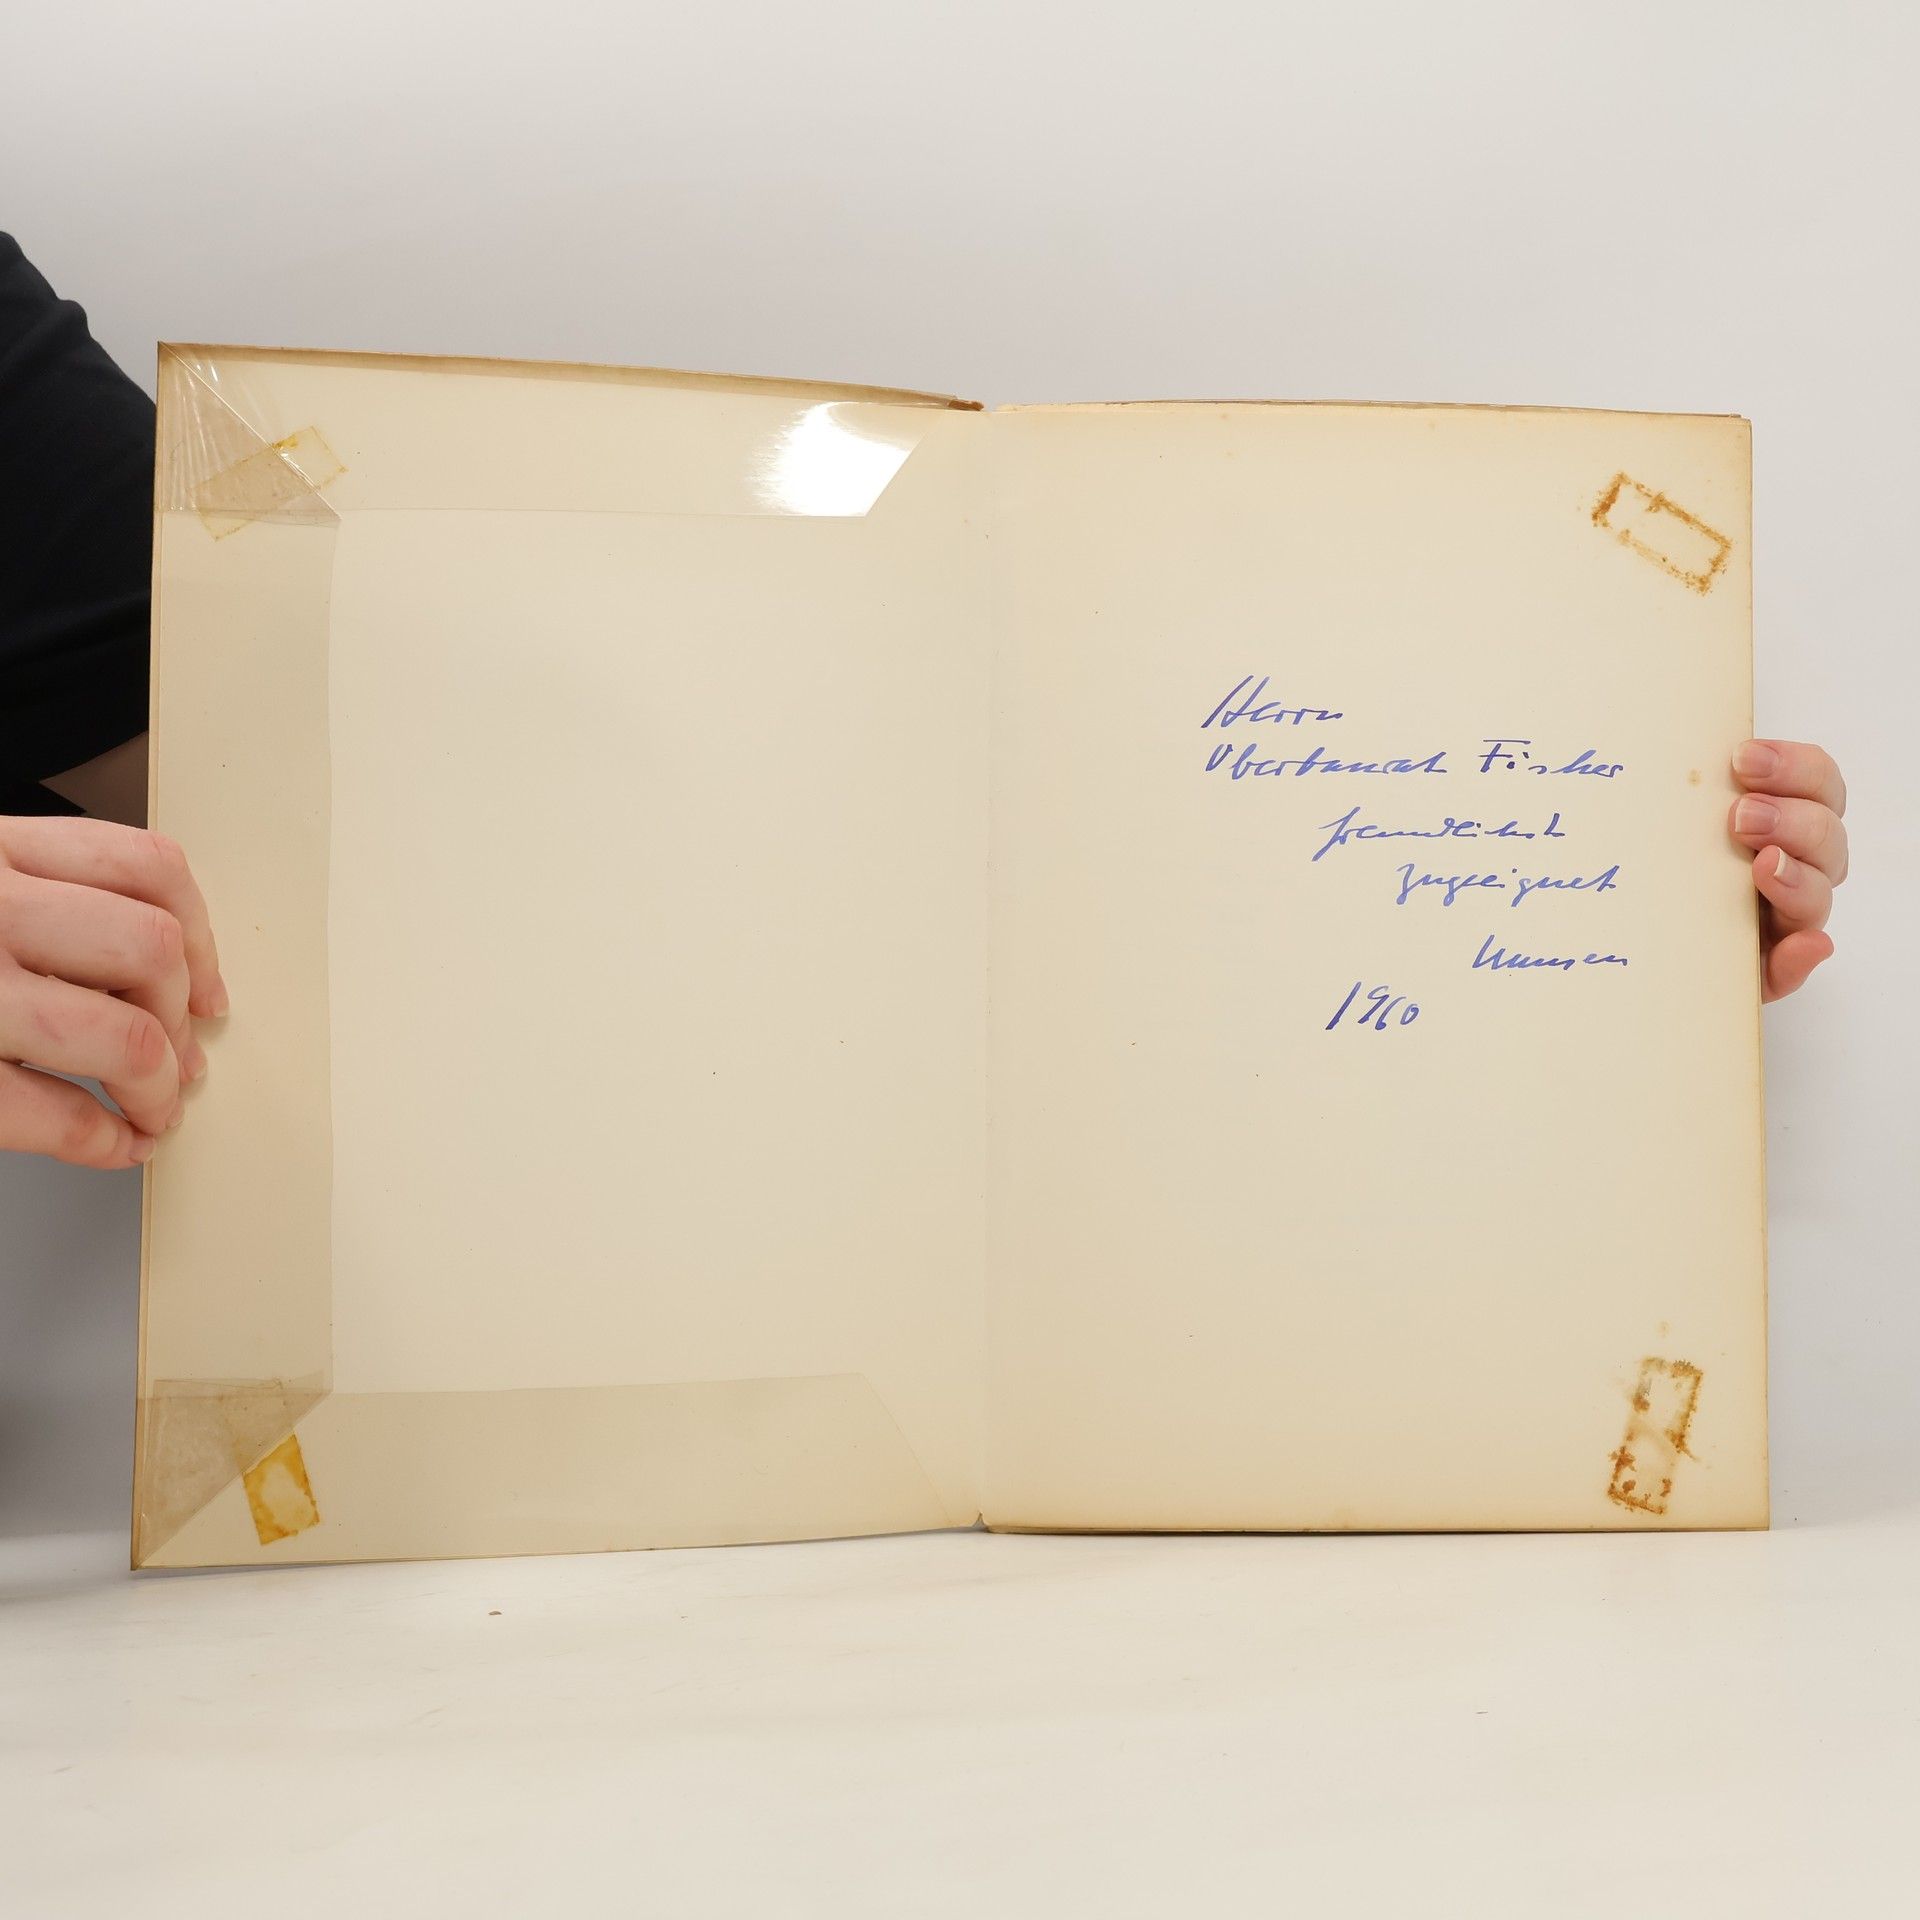 Herrn
Oberbaurat Fischer
freundlichst
zugeeignet
1960